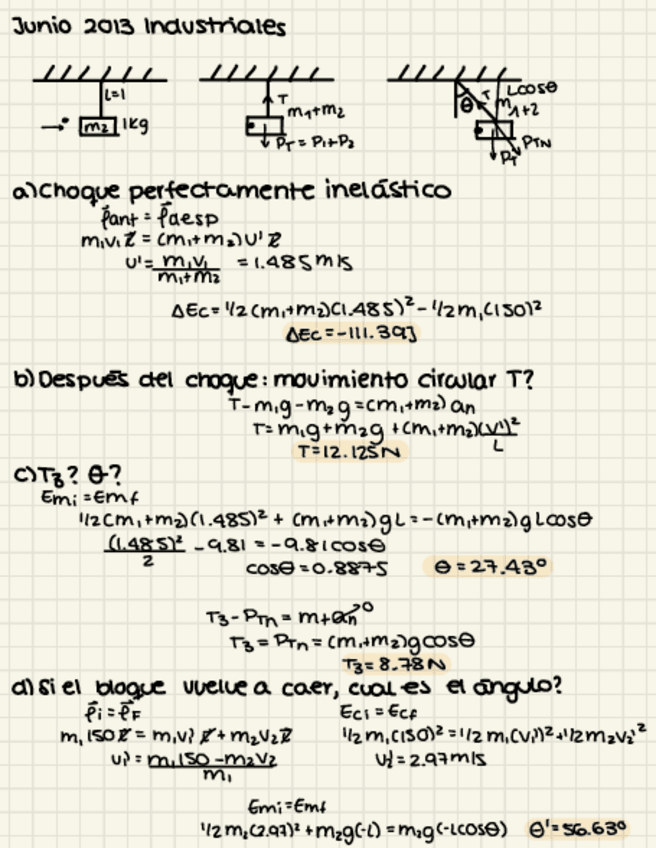 Junio 2013 Industriales
L=1
m2 1kg
T
m1+m2
PT = P1+P2
θ T Lcosθ
m1+2
PTN
PT
a) Choque perfectamente inelástico
p⃗ant = p⃗desp
m1v1 i⃗ = (m1+m2)v' i⃗
v' = m1v1/m1+m2 = 1.485 m/s
ΔEc = 1/2 (m1+m2)(1.485)² - 1/2 m1 (150)²
ΔEc = -111.39J
b) Después del choque: movimiento circular T?
T-m1g-m2g = (m1+m2) an
T = m1g+m2g + (m1+m2)(v')²/L
T = 12.125N
c) T3? θ?
Emi = Emf
1/2(m1+m2)(1.485)² + (m1+m2)gL = -(m1+m2)gLcosθ
(1.485)²/2 - 9.81 = -9.81cosθ
cosθ = 0.8875 θ = 27.43°
T3-PTn = m+an→0
T3 = PTn = (m1+m2)gcosθ
T3 = 8.78N
d) Si el bloque vuelve a caer, cual es el ángulo?
p⃗i = p⃗F Eci = Ecf
m1 150 i⃗ = m1v1' i⃗ + m2v2 i⃗ 1/2 m1(150)² = 1/2 m1(v1')² + 1/2 m2v2'²
v1' = m1 150 - m2v2/m1 v2' = 2.97 m/s
Emi = Emf
1/2 m2(2.97)² + m2g(-L) = m2g(-Lcosθ) θ' = 56.63°